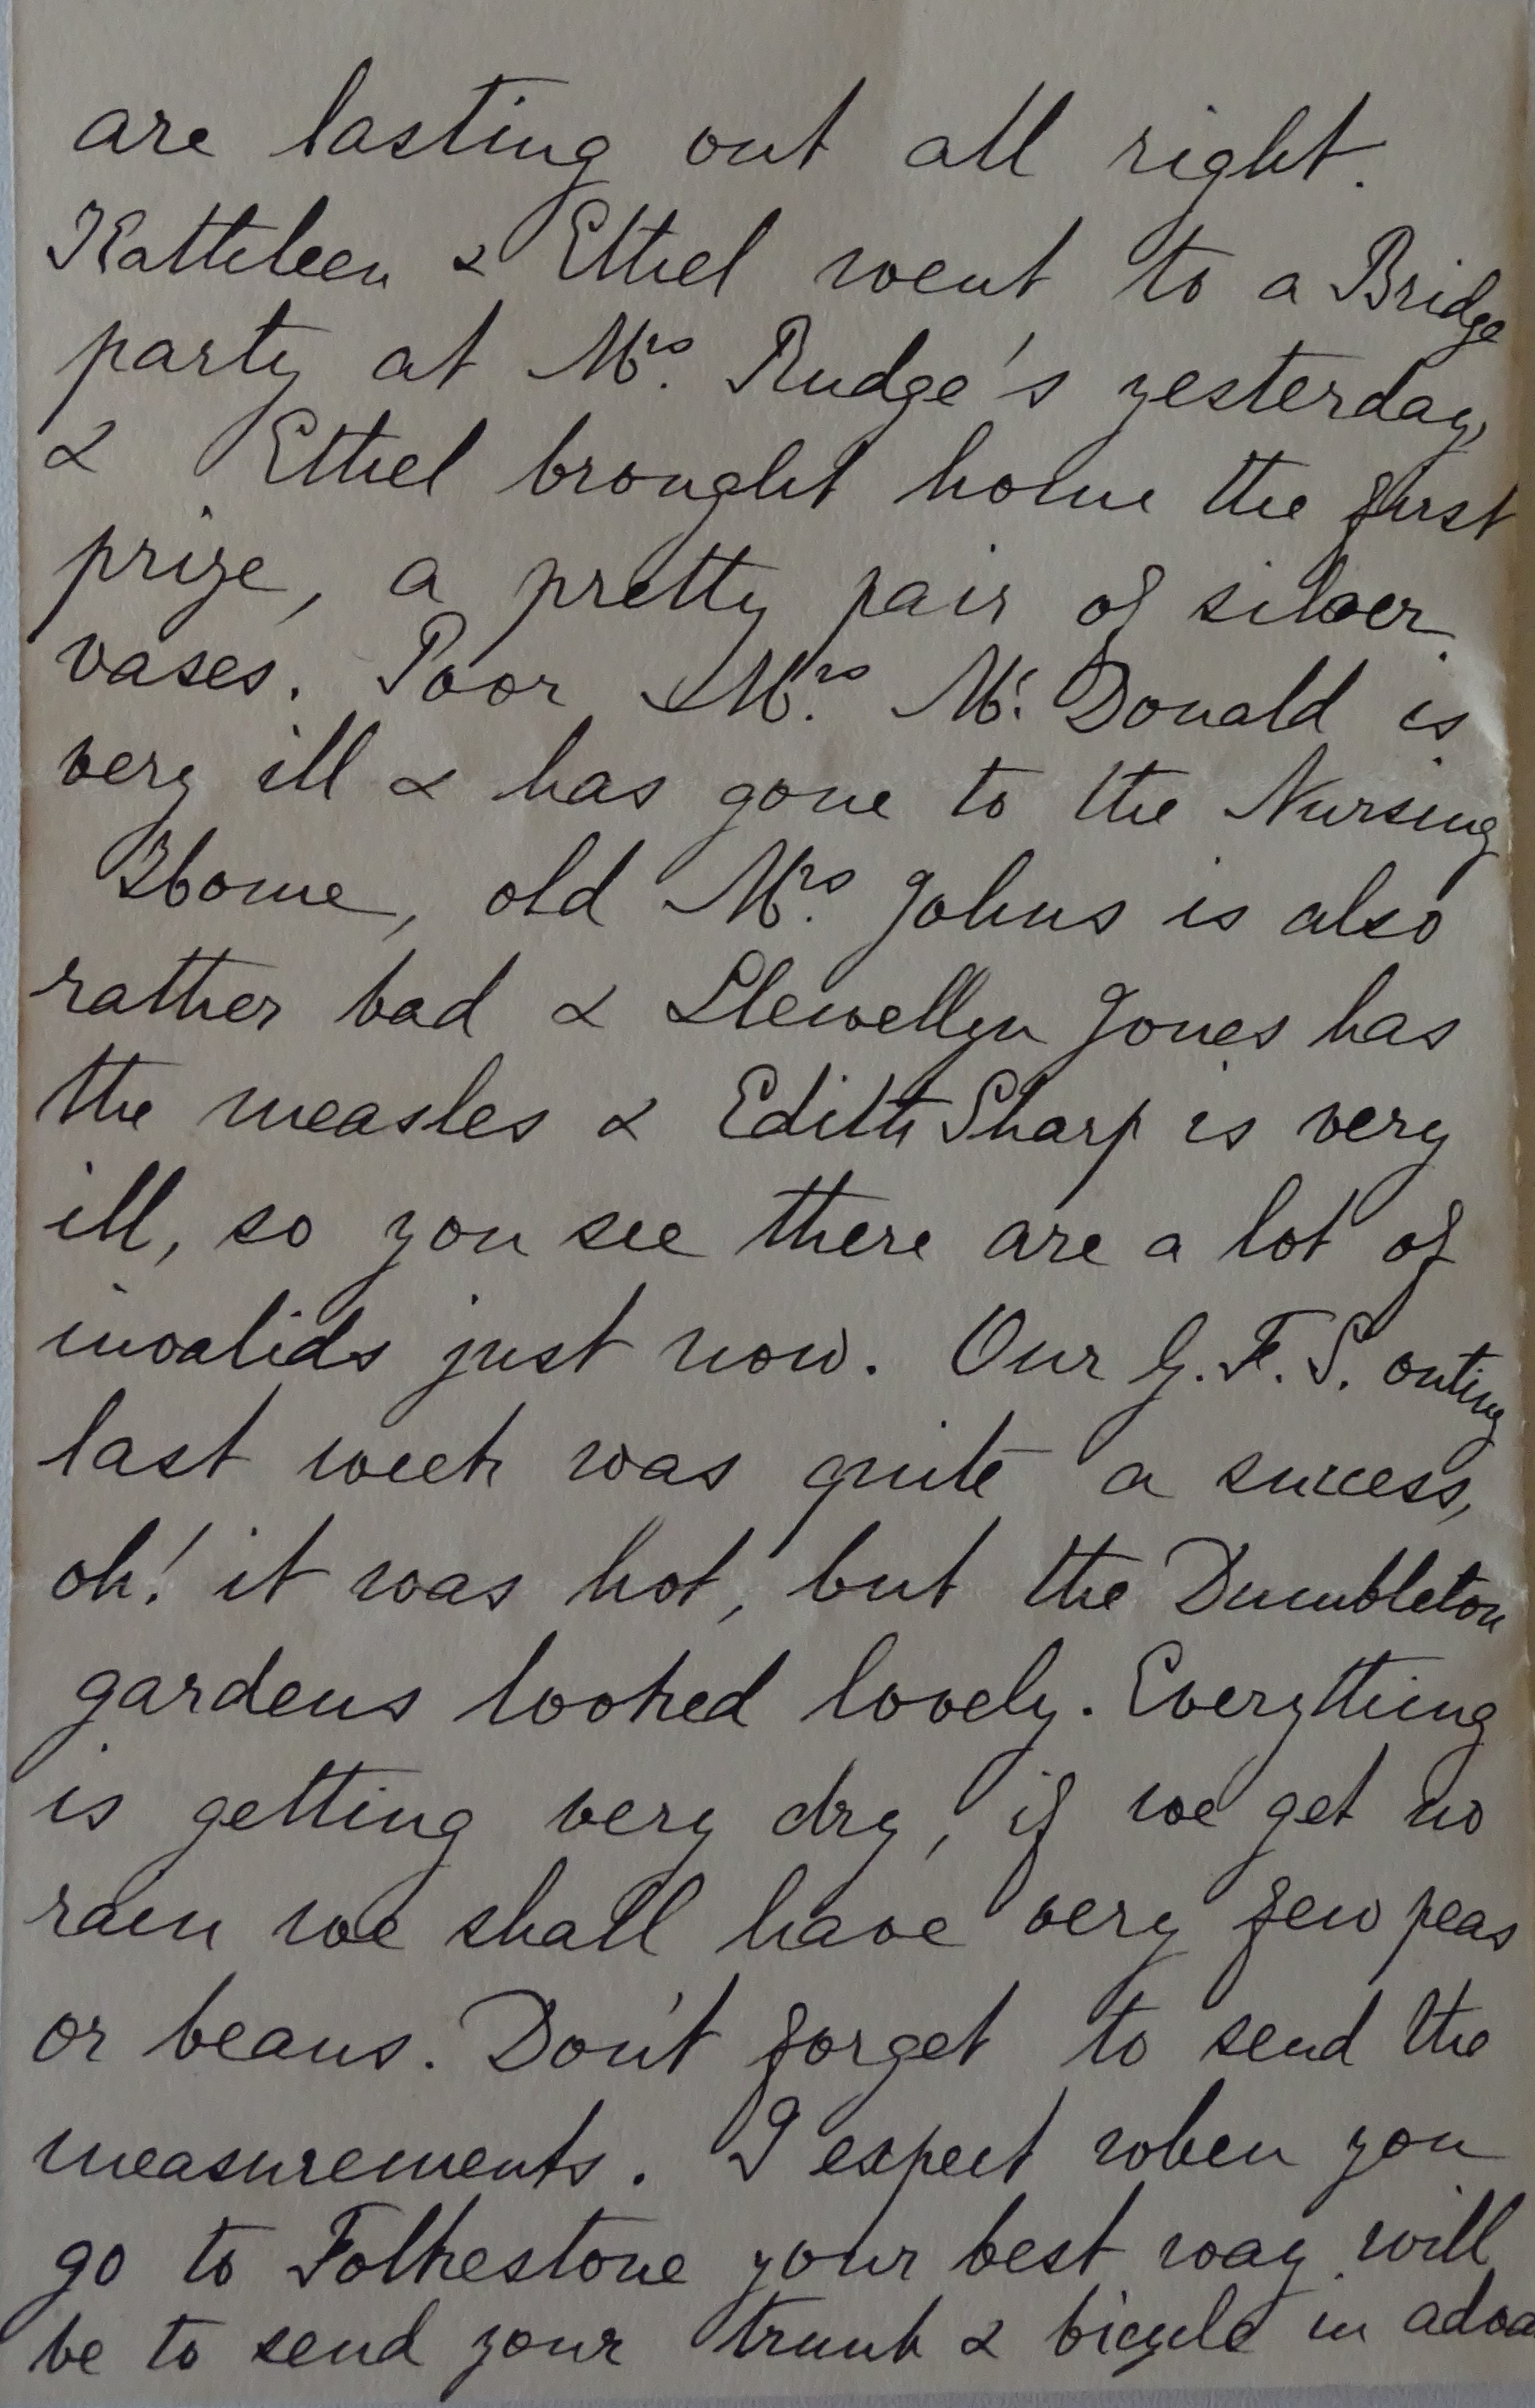 are lasting out all right.
Kathleen & Ethel went to a Bridge
party at Mrs. Rudge's yesterday,
& Ethel brought home the first
prize, a pretty pair of silver
vases. Poor Mrs. Mc. Donald is
very ill & has gone to the Nursing
Home, old Mrs. Johns is also
rather bad & Llewellyn Jones has
the measles & Edith Sharp is very
ill, so you see there are a lot of
invalids just now. Our G. F. S. outing
last week was quite a success,
oh! it was hot, but the Dumbleton
gardens looked lovely. Everything
is getting very dry, if we get no
rain we shall have very few peas
or beans. Don't forget to send the
measurements. I expect when you
go to Folkestone your best way will
be to send your trunk & bicycle in adva